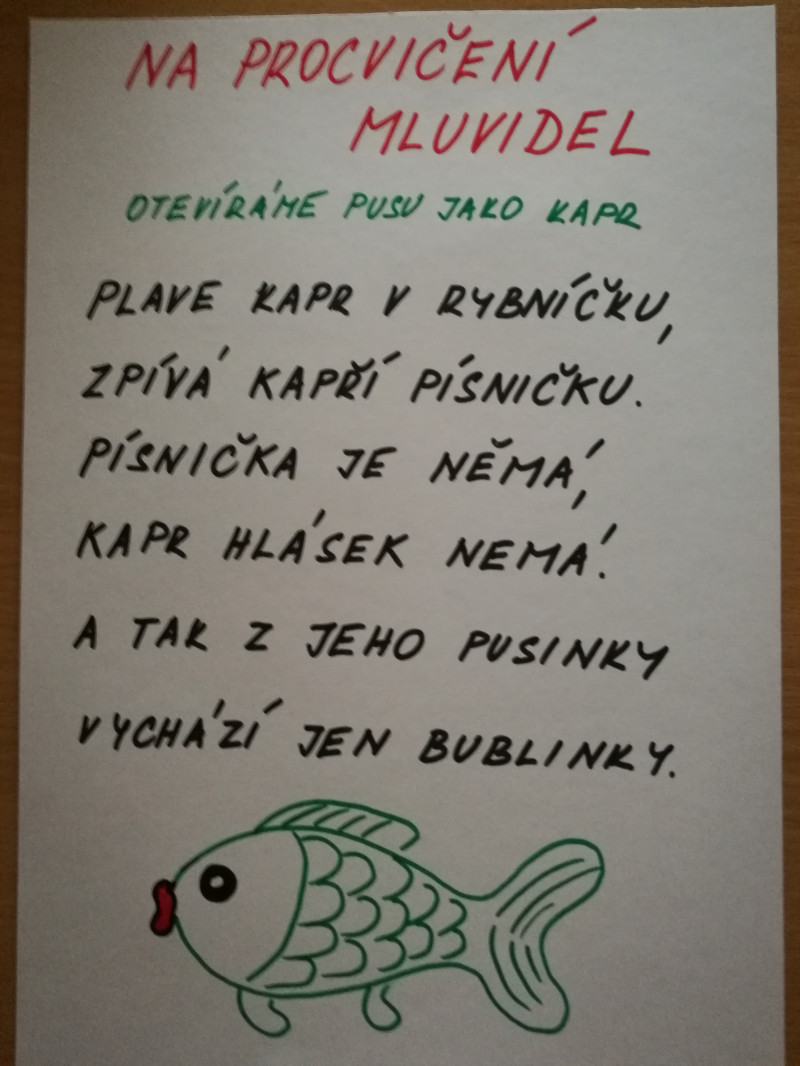 NA PROCVIČENÍ
MLUVIDEL
OTEVÍRÁME PUSU JAKO KAPR
PLAVE KAPR V RYBNÍČKU,
ZPÍVÁ KAPŘÍ PÍSNIČKU.
PÍSNIČKA JE NĚMÁ,
KAPR HLÁSEK NEMÁ.
A TAK Z JEHO PUSINKY
VYCHÁZÍ JEN BUBLINKY.